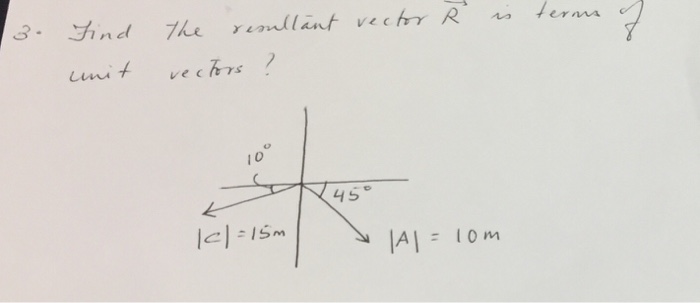 3. Find the resultant vector R⃗ in terms of
unit vectors ?
10°
45°
|C| = 15m
|A| = 10m